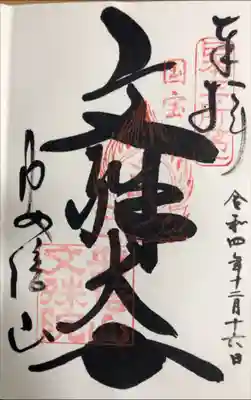 奉拝
国宝
令和四年十二月十六日
文殊大士
安倍山
文殊院